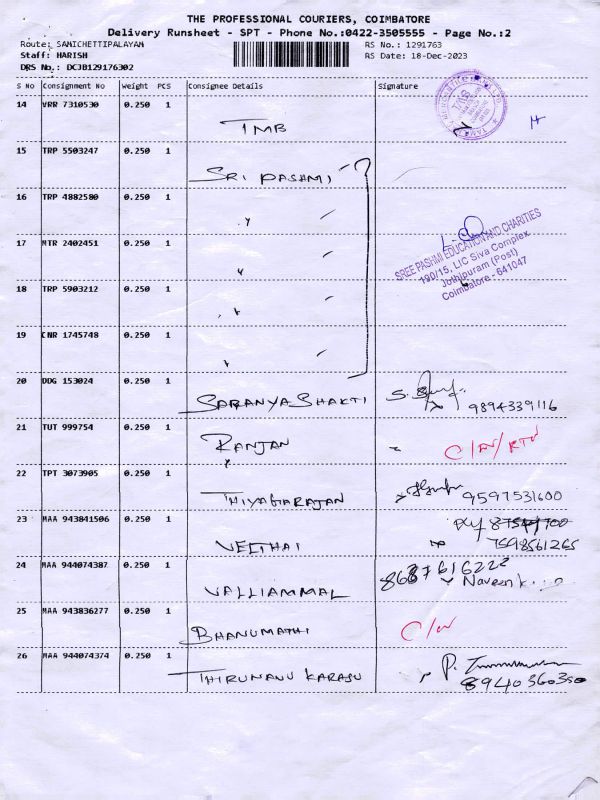 THE PROFESSIONAL COURIERS, COIMBATORE
Delivery Runsheet - SPT - Phone No.:0422-3505555 - Page No.:2
Route: SAMICHETTIPALAYAM
RS No.: 1291763
Staff: HARISH
RS Date: 18-Dec-2023
DRS No.: DCJB129176302
S No Consignment No Weight PCS Consignee Details Signature
14 VRR 7310530 0.250 1
TMB
15 TRP 5503247 0.250 1
SRI PASHMI
16 TRP 4882580 0.250 1
17 MTR 2402451 0.250 1
SREE PASHMI EDUCATION AND CHARITIES
190/15, LIC Siva Complex
Jothipuram (Post)
Coimbatore - 641047
18 TRP 5903212 0.250 1
19 CNR 1745748 0.250 1
20 DDG 153024 0.250 1
SARANYA SHAKTI
9894339116
21 TUT 999754 0.250 1
RANJAN
22 TPT 3073905 0.250 1
THIYAGARAJAN 9597531600
23 MAA 943841506 0.250 1
VEETHAI 7598561265
24 MAA 944074387 0.250 1
8637616222
VALLIAMMAL Naveen k
25 MAA 943836277 0.250 1
BHANUMATHI
26 MAA 944074374 0.250 1
THIRUNANU KARASU
8940360350